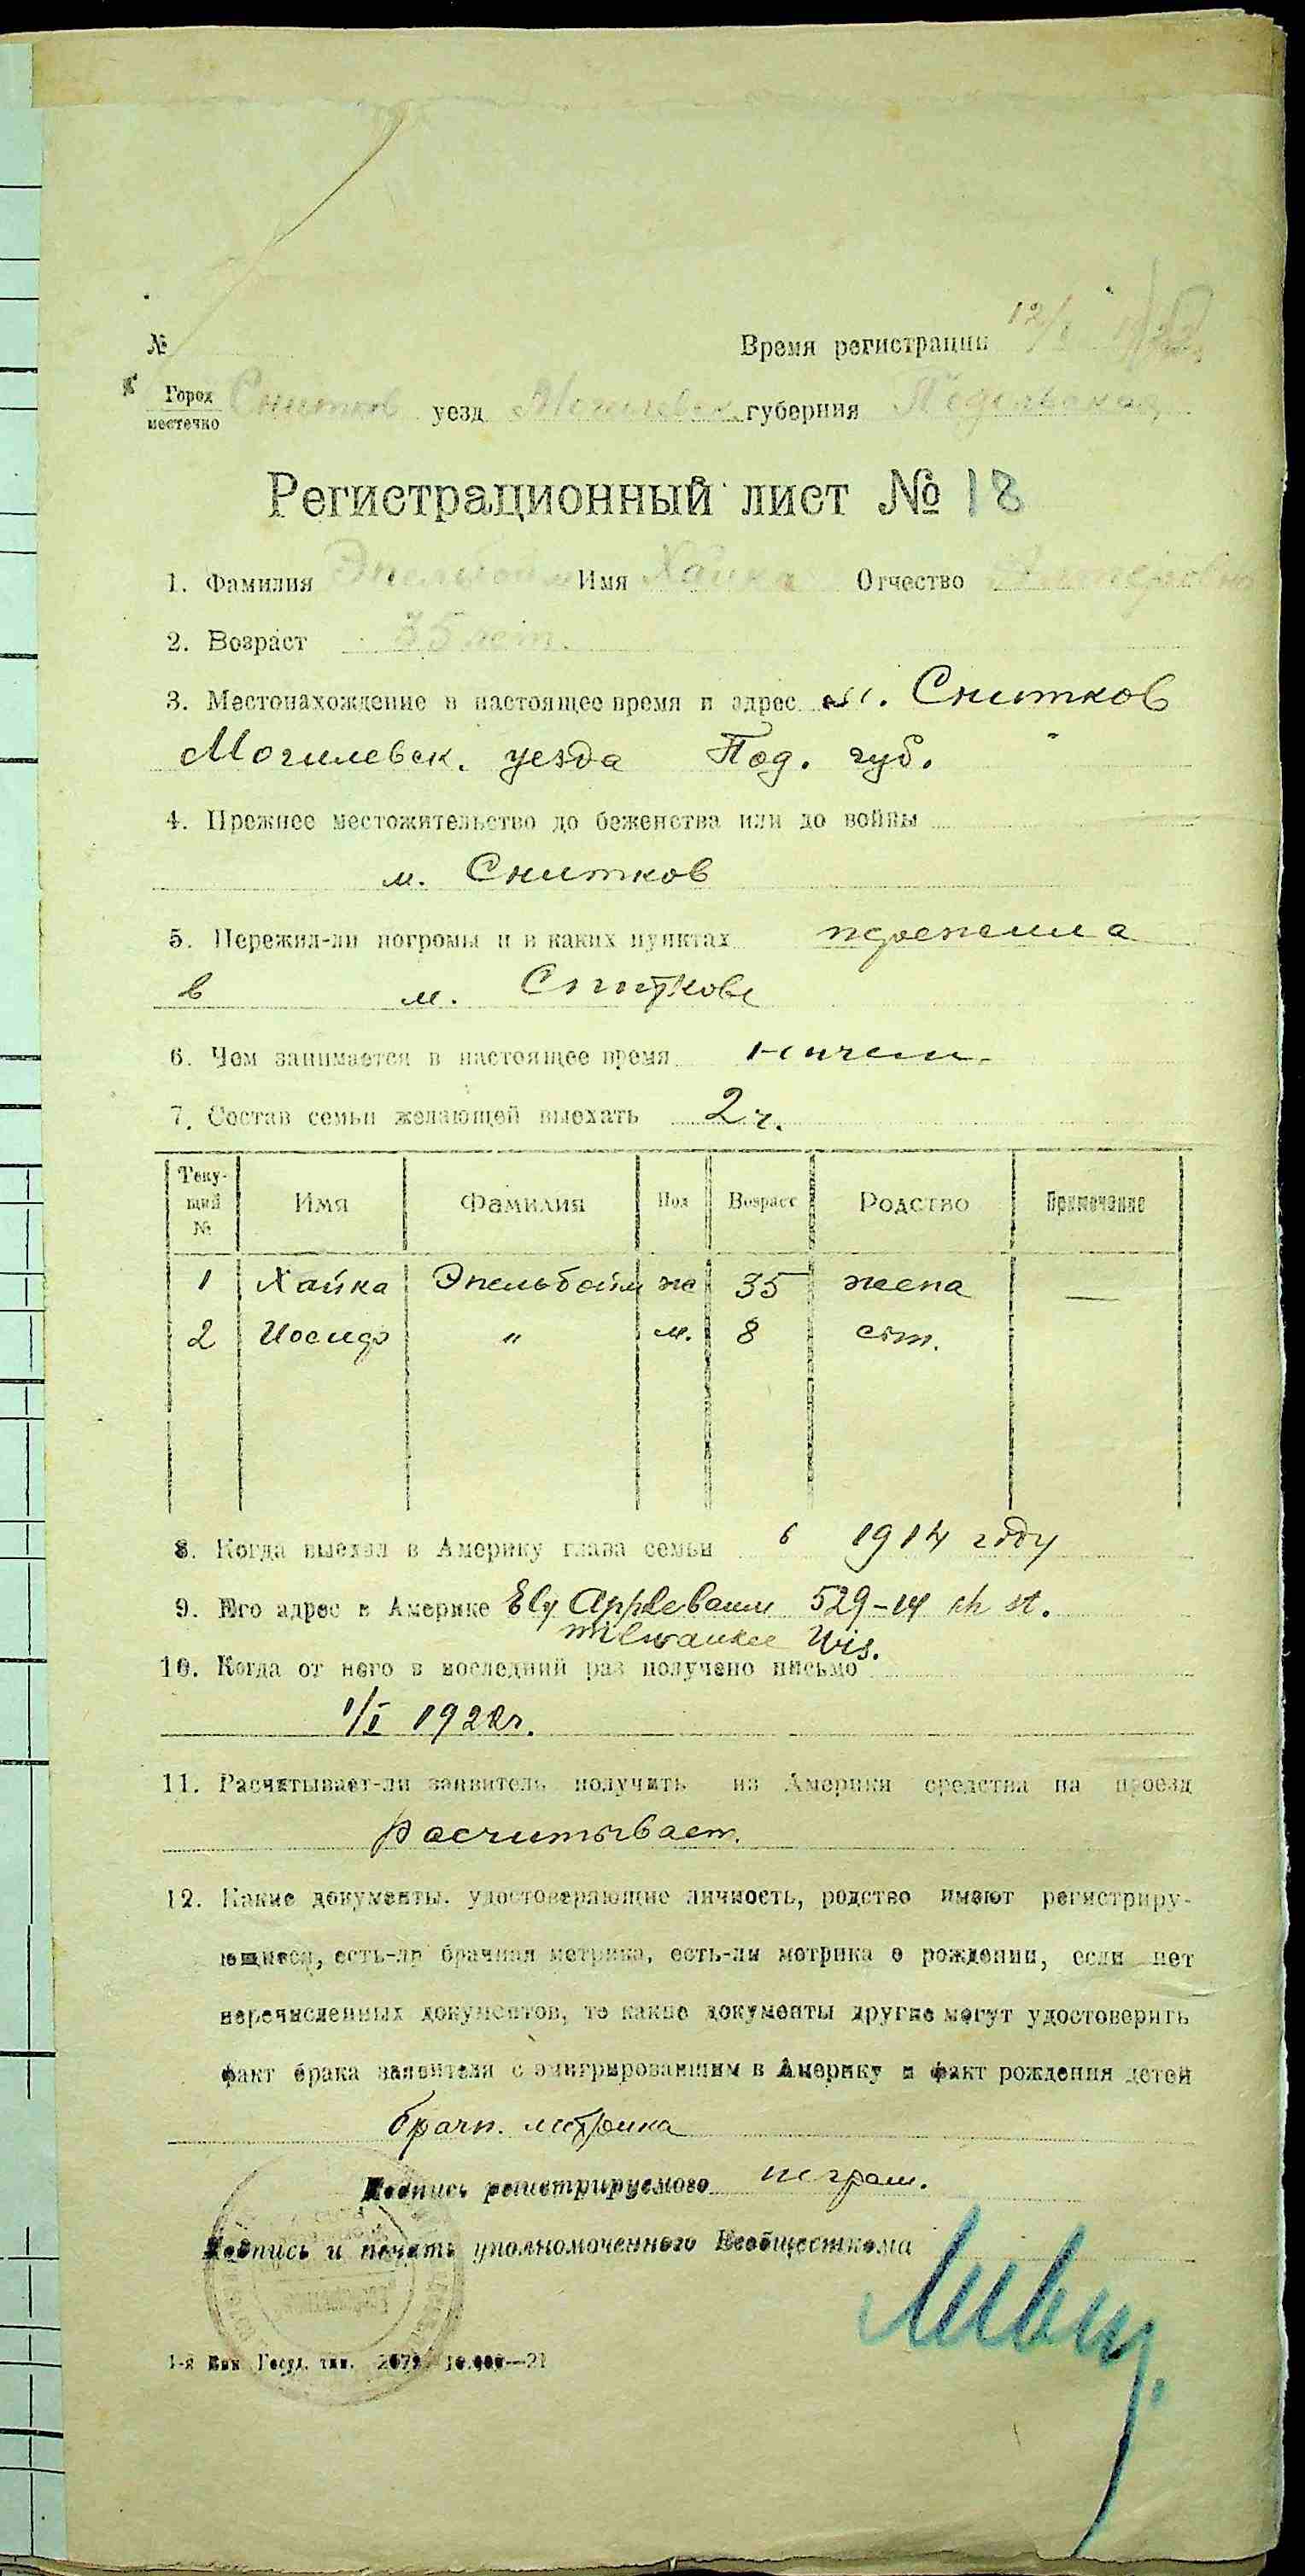 №
Время регистрации 12/I
Город местечко Снитков уезд Могилевск. губерния Подольская
Регистрационный лист № 18
1. Фамилия Эпельбойм Имя Хайка Отчество
2. Возраст 35 лет.
3. Местонахождение в настоящее время и адрес м. Снитков
Могилевск. уезда Под. губ.
4. Прежнее местожительство до беженства или до войны
м. Снитков
5. Пережил-ли погромы и в каких пунктах пережила
в м. Сниткове
6. Чем занимается в настоящее время ничем.
7. Состав семьи желающей выехать 2 ч.
Теку-щий № Имя Фамилия Пол Возраст Родство Примечание
1 Хайка Эпельбойм ж 35 жена —
2 Иосиф " м. 8 сын.
8. Когда выехал в Америку глава семьи в 1914 году
9. Его адрес в Америке Ely Applebaum 529-14 th st.
Milwaukee Wis.
10. Когда от него в последний раз получено письмо
1/I 1922г.
11. Расчитывает-ли заявитель получить из Америки средства на проезд
Расчитывает.
12. Какие документы. удостоверяющие личность, родство имеют регистриру-
ющиеся, есть-ли брачная метрика, есть-ли метрика о рождении, если нет
перечисленных документов, то какие документы другие могут удостоверить
факт брака заявителя с эмигрировавшим в Америку и факт рождения детей
брачн. метрика
Подпись регистрируемого неграм.
Подпись и печать уполномоченного Всеобщесткома
1-я Вин Госуд. тип. 10.000—21